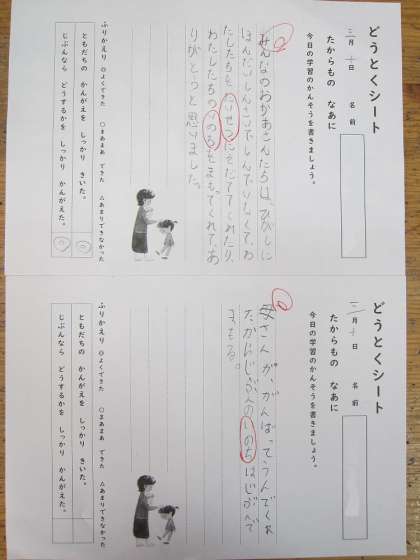 どうとくシート
三月十日 名前
たからもの なあに
今日の学習のかんそうを書きましょう。
みんなのおかあさんたちは、ひがしに
ほんだいしんさいでしんでいしくて、わ
たしたちをたいせつにそだててくれたり、
わたしたちのいのちをまもってくれて、あ
りがとうと思いました。
ふりかえり ◎よくできた ○まあまあ できた △あまりできなかった
ともだちの かんがえを しっかり きいた。
じぶんなら どうするかを しっかり かんがえた。
どうとくシート
三月十日 名前
たからもの なあに
今日の学習のかんそうを書きましょう。
母さんが、がんばって、うんでくれ
たかんじぶんのいのちはじぶんで
まもる。
ふりかえり ◎よくできた ○まあまあ できた △あまりできなかった
ともだちの かんがえを しっかり きいた。
じぶんなら どうするかを しっかり かんがえた。